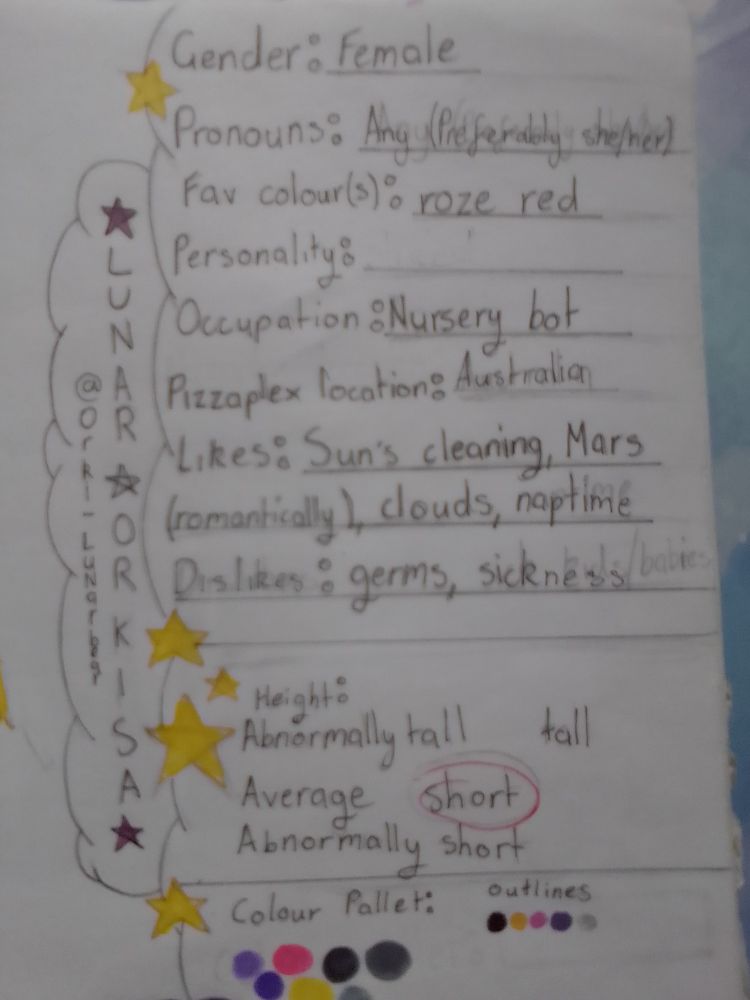 Gender: Female
Pronouns: Any (Preferably she/her)
Fav colour(s): roze red
Personality:
Occupation: Nursery bot
Pizzaplex location: Australian
Likes: Sun's cleaning, Mars
(romantically), clouds, naptime
Dislikes: germs, sickness/babies
LUNAR ☆ ORKISA
Height:
Abnormally tall tall
Average short
Abnormally short
Colour Pallet: outlines